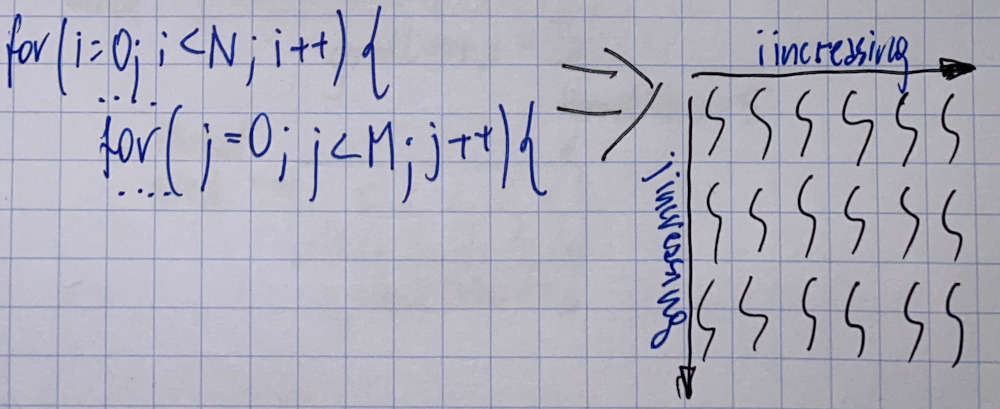 for(i=0; i<N; i++){
....
for(j=0; j<M; j++){
....
i increasing
j increasing